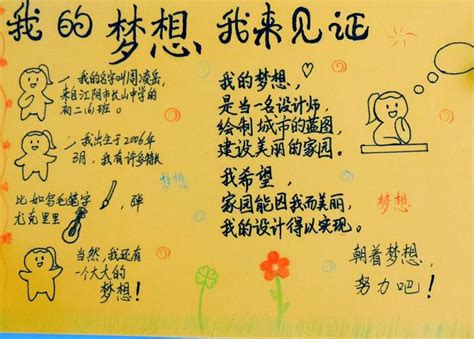 我的梦想 我来见证
一我的名字叫周凌岳,
来自江阴市长山中学的
初二(6)班。
一我出生于2006年
3月,我有许多特长
比如写毛笔字
,弹
尤克里里
当然,我还有
一个大大的
梦想!
我的梦想,
是当一名设计师,
绘制城市的蓝图,
建设美丽的家园。
我希望,
家园能因我而美丽,
我的设计得以实现。
梦想
梦想
梦想
朝着梦想,
努力吧!